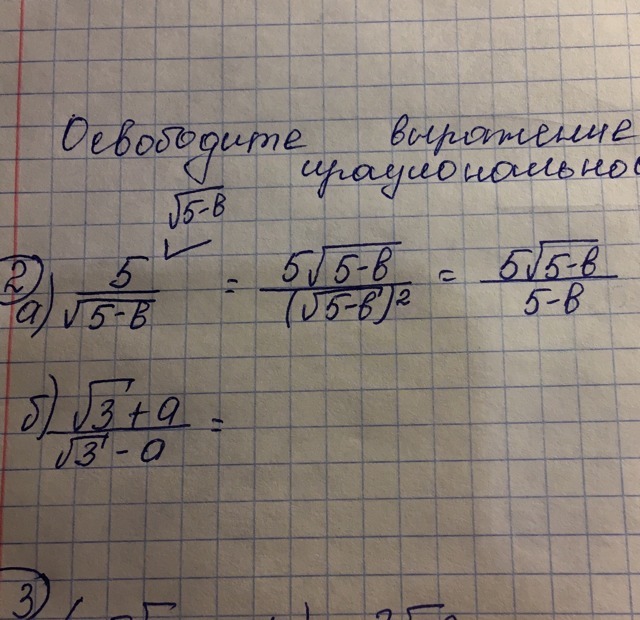 Освободите выражение
иррациональнос
√5-в
2
а) 5/√5-в = 5√5-в/(√5-в)² = 5√5-в/5-в
б) √3+а/√3-а =
3